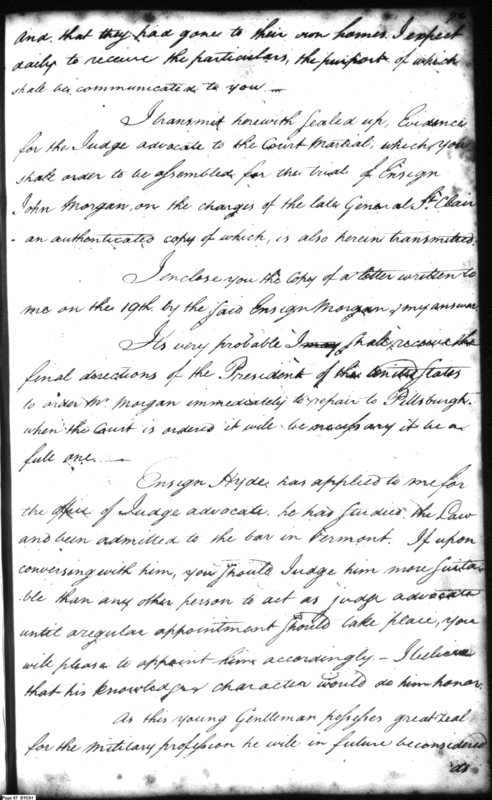 and that they had gone to their own homes. I expect
daily to receive the particulars, the purport of which
shall be communicated to you —
I transmit herewith sealed up, Evidence
for the Judge advocate to the Court Martial, which you
shall order to be assembled for the trial of Ensign
John Morgan, on the charges of the late General St. Clair
- an authenticated copy of which, is also herein transmitted.
I enclose you the Copy of a letter written to
me on the 19th. by the said Ensign Morgan & my answer.
It's very probable I may shall receive the
final directions of the President of the United States
to order Mr. Morgan immediately to repair to Pittsburgh.
when the Court is ordered it will be necessary it be a
full one. —
Ensign Hyde has applied to me for
the office of Judge advocate. he had studied the Law
and been admitted to the bar in Vermont. If upon
conversing with him, you should Judge him more suita-
ble than any other person to act as judge advocate
until a regular appointment should take place, you
will please to appoint him accordingly — I believe
that his knowledge & character would do him honor.
As this young Gentleman possesses great zeal
for the military profession he will in future be considered
as
Page 87 DTC01